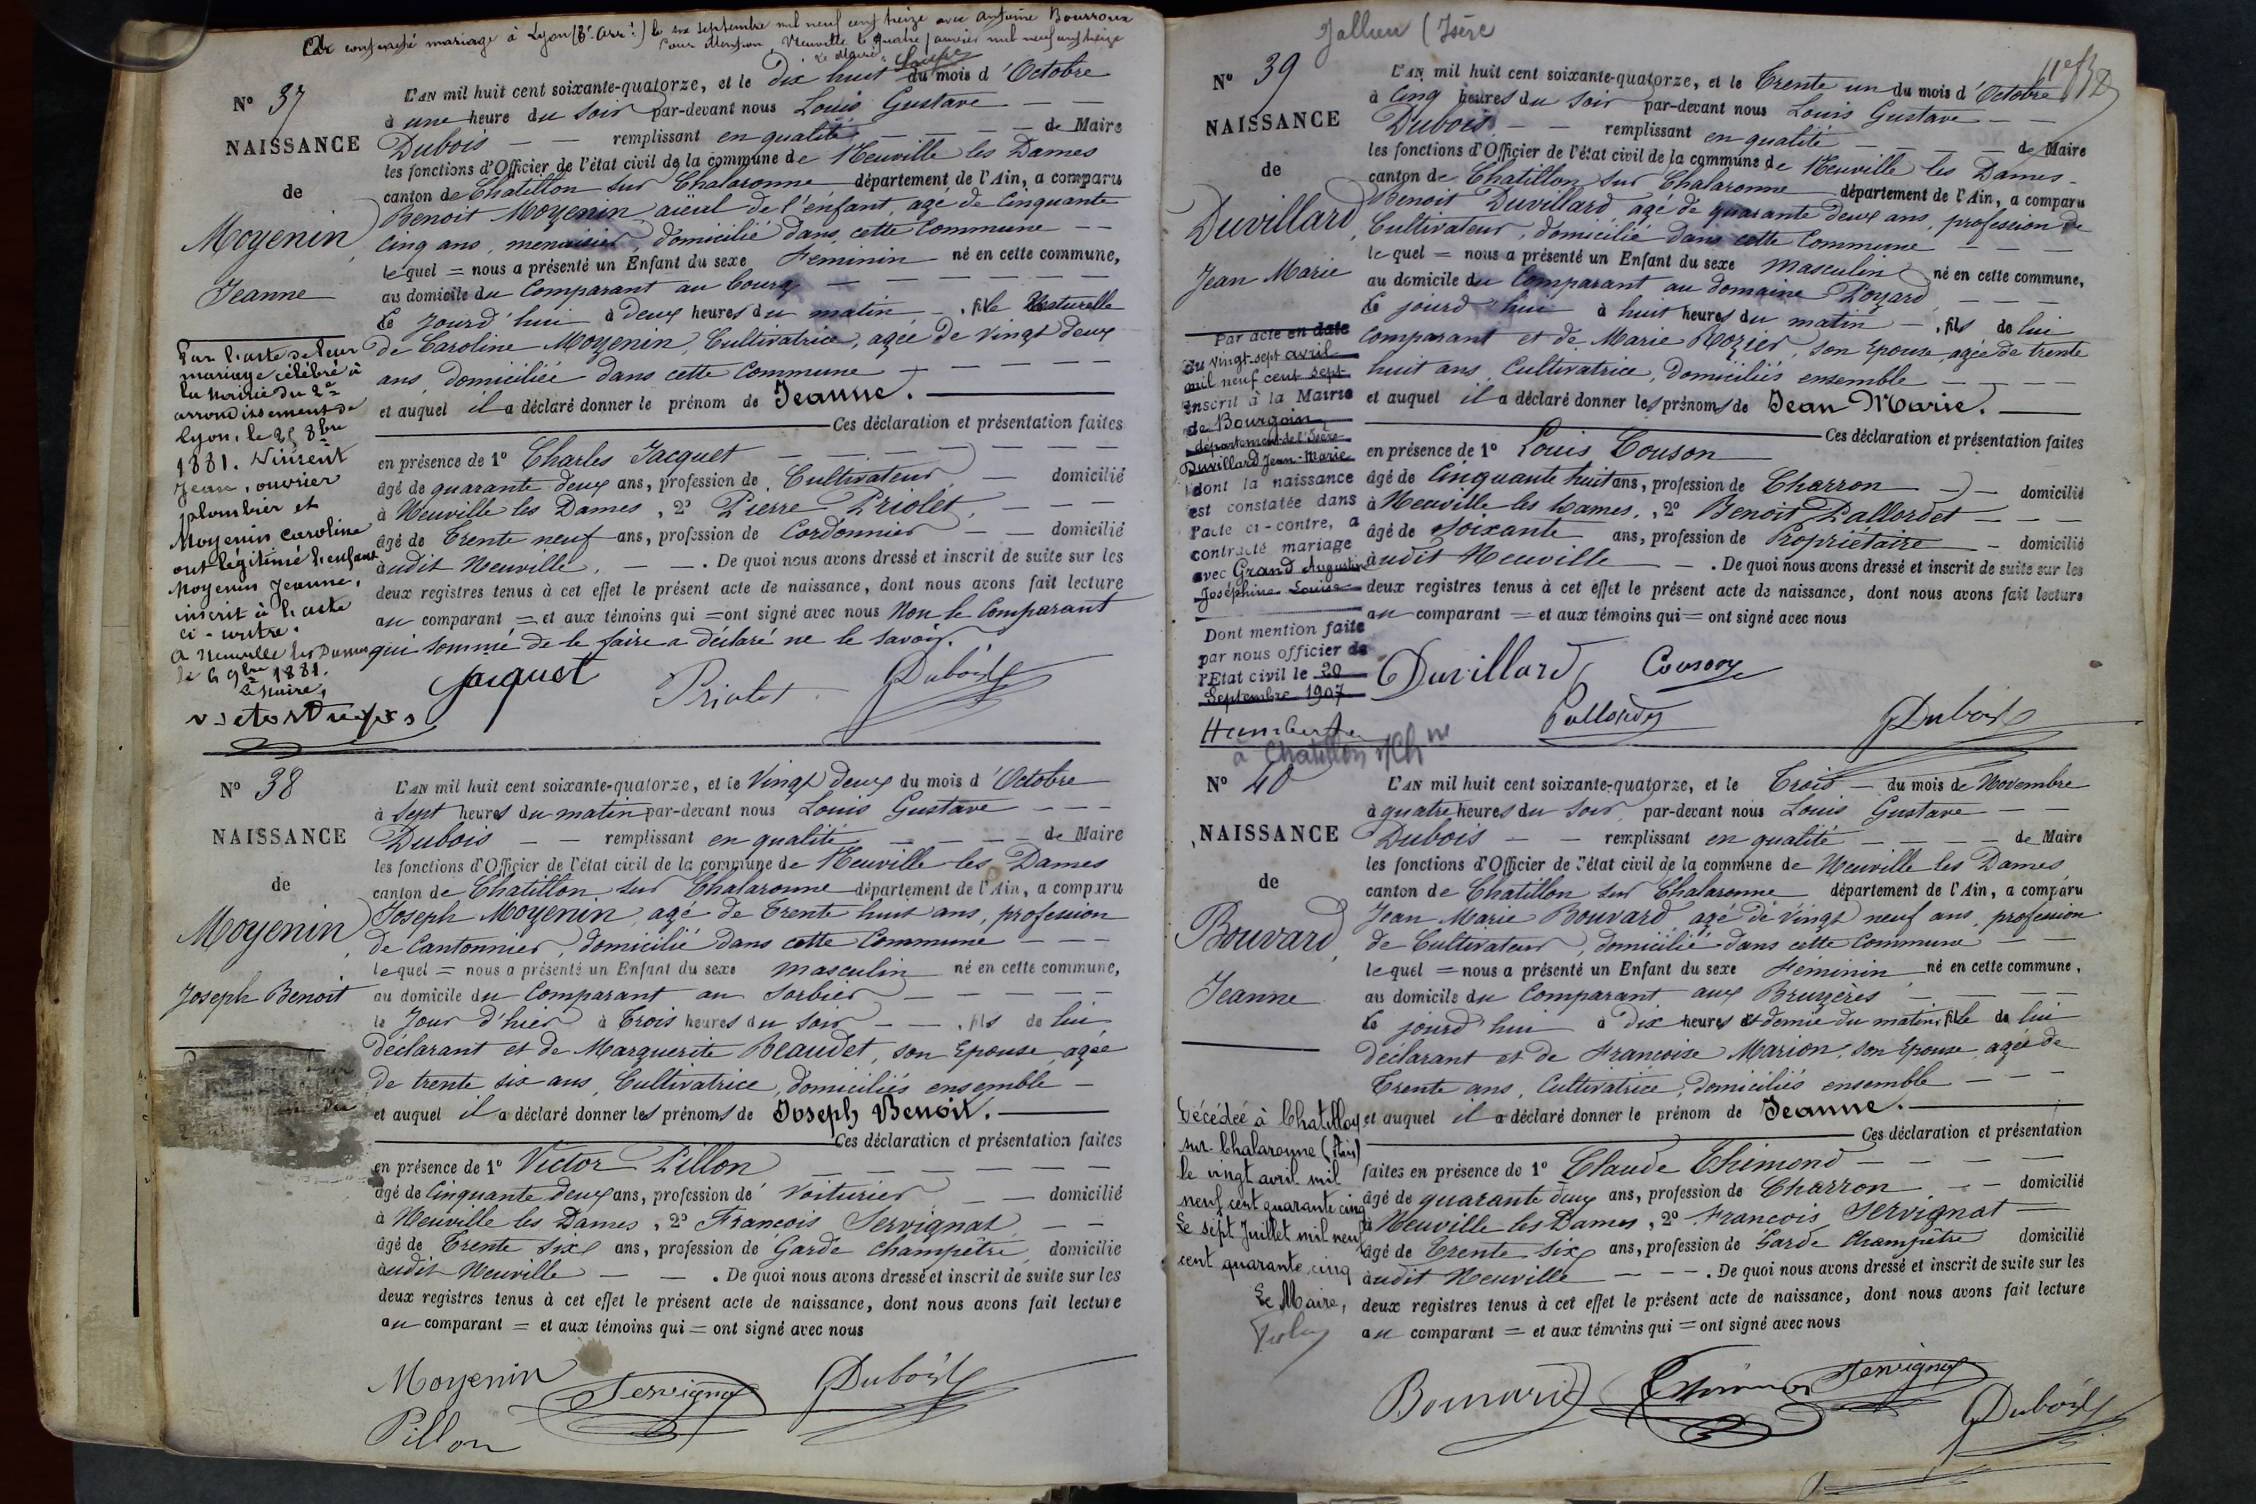 contracté mariage à Lyon (6e arrt) le six septembre mil neuf cent treize avec Antoine Bourroux
Pour Mention, Neuville le quatre janvier mil neuf cent
Le Maire,
N° 37
NAISSANCE
de
Moyenin,
Jeanne
Par l'acte de leur
mariage célébré à
la Mairie du 2e
arrondissement de
Lyon, le 25 8bre
1881. Vincent
Jean, ouvrier
plombier et
Moyenin Caroline
ont légitimé l'enfant
Moyenin Jeanne,
inscrit à l'acte
ci-contre.
A Neuville les Dames
le 6 9bre 1881.
Le Maire,
L'AN mil huit cent soixante-quatorze, et le Dix huit du mois d'Octobre
à une heure du soir par-devant nous Louis Gustave
Dubois remplissant en qualité de Maire
les fonctions d'Officier de l'état civil de la commune de Neuville les Dames
canton de Chatillon sur Chalaronne département de l'Ain, a comparu
Benoit Moyenin aïeul de l'enfant, agé de Cinquante
Cinq ans, menuisier, domicilié dans cette Commune
lequel = nous a présenté un Enfant du sexe Feminin né en cette commune,
au domicile du Comparant au bourg
Ce Jourd'hui à Deux heures du matin, fille Naturelle
de Caroline Moyenin, Cultivatrice, agée de vingt deux
ans, domiciliée dans cette Commune
et auquel il a déclaré donner le prénom de Jeanne.
Ces déclaration et présentation faites
en présence de 1° Charles Jacquet
âgé de quarante deux ans, profession de Cultivateur domicilié
à Neuville les Dames, 2° Pierre Priolet,
âgé de Trente neuf ans, profession de Cordonnier domicilié
àudit Neuville. De quoi nous avons dressé et inscrit de suite sur les
deux registres tenus à cet effet le présent acte de naissance, dont nous avons fait lecture
au comparant = et aux témoins qui = ont signé avec nous Non le Comparant
qui sommé de le faire a déclaré ne le savoir.
Jacquet Priolet Dubois
N° 38
NAISSANCE
de
Moyenin,
Joseph Benoit
L'AN mil huit cent soixante-quatorze, et le Vingt deux du mois d'Octobre
à Sept heures du matin par-devant nous Louis Gustave
Dubois remplissant en qualité de Maire
les fonctions d'Officier de l'état civil de la commune de Neuville les Dames
canton de Chatillon sur Chalaronne département de l'Ain, a comparu
Joseph Moyenin, agé de Trente huit ans, profession
de Cantonnier, domicilié dans cette Commune
lequel = nous a présenté un Enfant du sexe masculin né en cette commune,
au domicile du Comparant au Sorbier
le Jour d'hier à Trois heures du soir, fils de lui
déclarant et de Marguerite Beaudet, son Epouse agée
de trente six ans, Cultivatrice, domiciliés ensemble
et auquel il a déclaré donner les prénoms de Joseph Benoit.
Ces déclaration et présentation faites
en présence de 1° Victor Pillon
âgé de Cinquante deux ans, profession de Voiturier domicilié
à Neuville les Dames, 2° François Servignat
âgé de Trente Six ans, profession de Garde Champêtre domicilié
àudit Neuville. De quoi nous avons dressé et inscrit de suite sur les
deux registres tenus à cet effet le présent acte de naissance, dont nous avons fait lecture
au comparant = et aux témoins qui = ont signé avec nous
Moyenin Servignat Dubois
Pillon
Jallieu (Isère
N° 39
NAISSANCE
de
Duvillard,
Jean Marie
Par acte en date
du vingt-sept avril
mil neuf cent sept
inscrit à la Mairie
de Bourgoin
département de l'Isère
Duvillard Jean-Marie
dont la naissance
est constatée dans
l'acte ci-contre, a
contracté mariage
avec Grand Augustine
Joséphine Louise
Dont mention faite
par nous officier de
l'Etat civil le 20
Septembre 1907
L'AN mil huit cent soixante-quatorze, et le Trente un du mois d'Octobre
à Cinq heures du soir par-devant nous Louis Gustave
Dubois remplissant en qualité de Maire
les fonctions d'Officier de l'état civil de la commune de Neuville les Dames
canton de Chatillon sur Chalaronne département de l'Ain, a comparu
Benoit Duvillard agé de quarante deux ans, profession de
Cultivateur, domicilié dans cette Commune
lequel = nous a présenté un Enfant du sexe masculin né en cette commune,
au domicile du Comparant au domaine Poyard
Ce jourd'hui à huit heures du matin, fils de lui
Comparant et de Marie Rozier, son Epouse, agée de trente
huit ans, Cultivatrice, domiciliés ensemble
et auquel il a déclaré donner les prénoms de Jean Marie.
Ces déclaration et présentation faites
en présence de 1° Louis Couson
âgé de Cinquante huit ans, profession de Charron domicilié
à Neuville les Dames, 2° Benoit Pallordet
âgé de Soixante ans, profession de Propriétaire domicilié
àudit Neuville. De quoi nous avons dressé et inscrit de suite sur les
deux registres tenus à cet effet le présent acte de naissance, dont nous avons fait lecture
au comparant = et aux témoins qui = ont signé avec nous
Duvillard Couson
Pallordet Dubois
à Chatillon s/Chne
N° 40
NAISSANCE
de
Bouvard,
Jeanne
Décédée à Chatillon
sur Chalaronne (Ain)
le vingt avril mil
neuf cent quarante cinq
Le sept Juillet mil neuf
cent quarante cinq
Le Maire,
L'AN mil huit cent soixante-quatorze, et le Trois du mois de Novembre
à quatre heures du Soir par-devant nous Louis Gustave
Dubois remplissant en qualité de Maire
les fonctions d'Officier de l'état civil de la commune de Neuville les Dames
canton de Chatillon sur Chalaronne département de l'Ain, a comparu
Jean Marie Bouvard agé de vingt neuf ans, profession
de Cultivateur, domicilié dans cette Commune
lequel = nous a présenté un Enfant du sexe Féminin né en cette commune,
au domicile du Comparant aux Bruyères
Ce jourd'hui à Dix heures et demie du matin, fille de lui
déclarant et de Françoise Marion, son Epouse, agée de
Trente ans, Cultivatrice, domiciliés ensemble
et auquel il a déclaré donner le prénom de Jeanne.
Ces déclaration et présentation
faites en présence de 1° Claude Thimond
âgé de quarante deux ans, profession de Charron domicilié
à Neuville les Dames, 2° François Servignat
âgé de Trente Six ans, profession de Garde Champêtre domicilié
àudit Neuville. De quoi nous avons dressé et inscrit de suite sur les
deux registres tenus à cet effet le présent acte de naissance, dont nous avons fait lecture
au comparant = et aux témoins qui = ont signé avec nous
Bouvard Thimond Servignat
Dubois